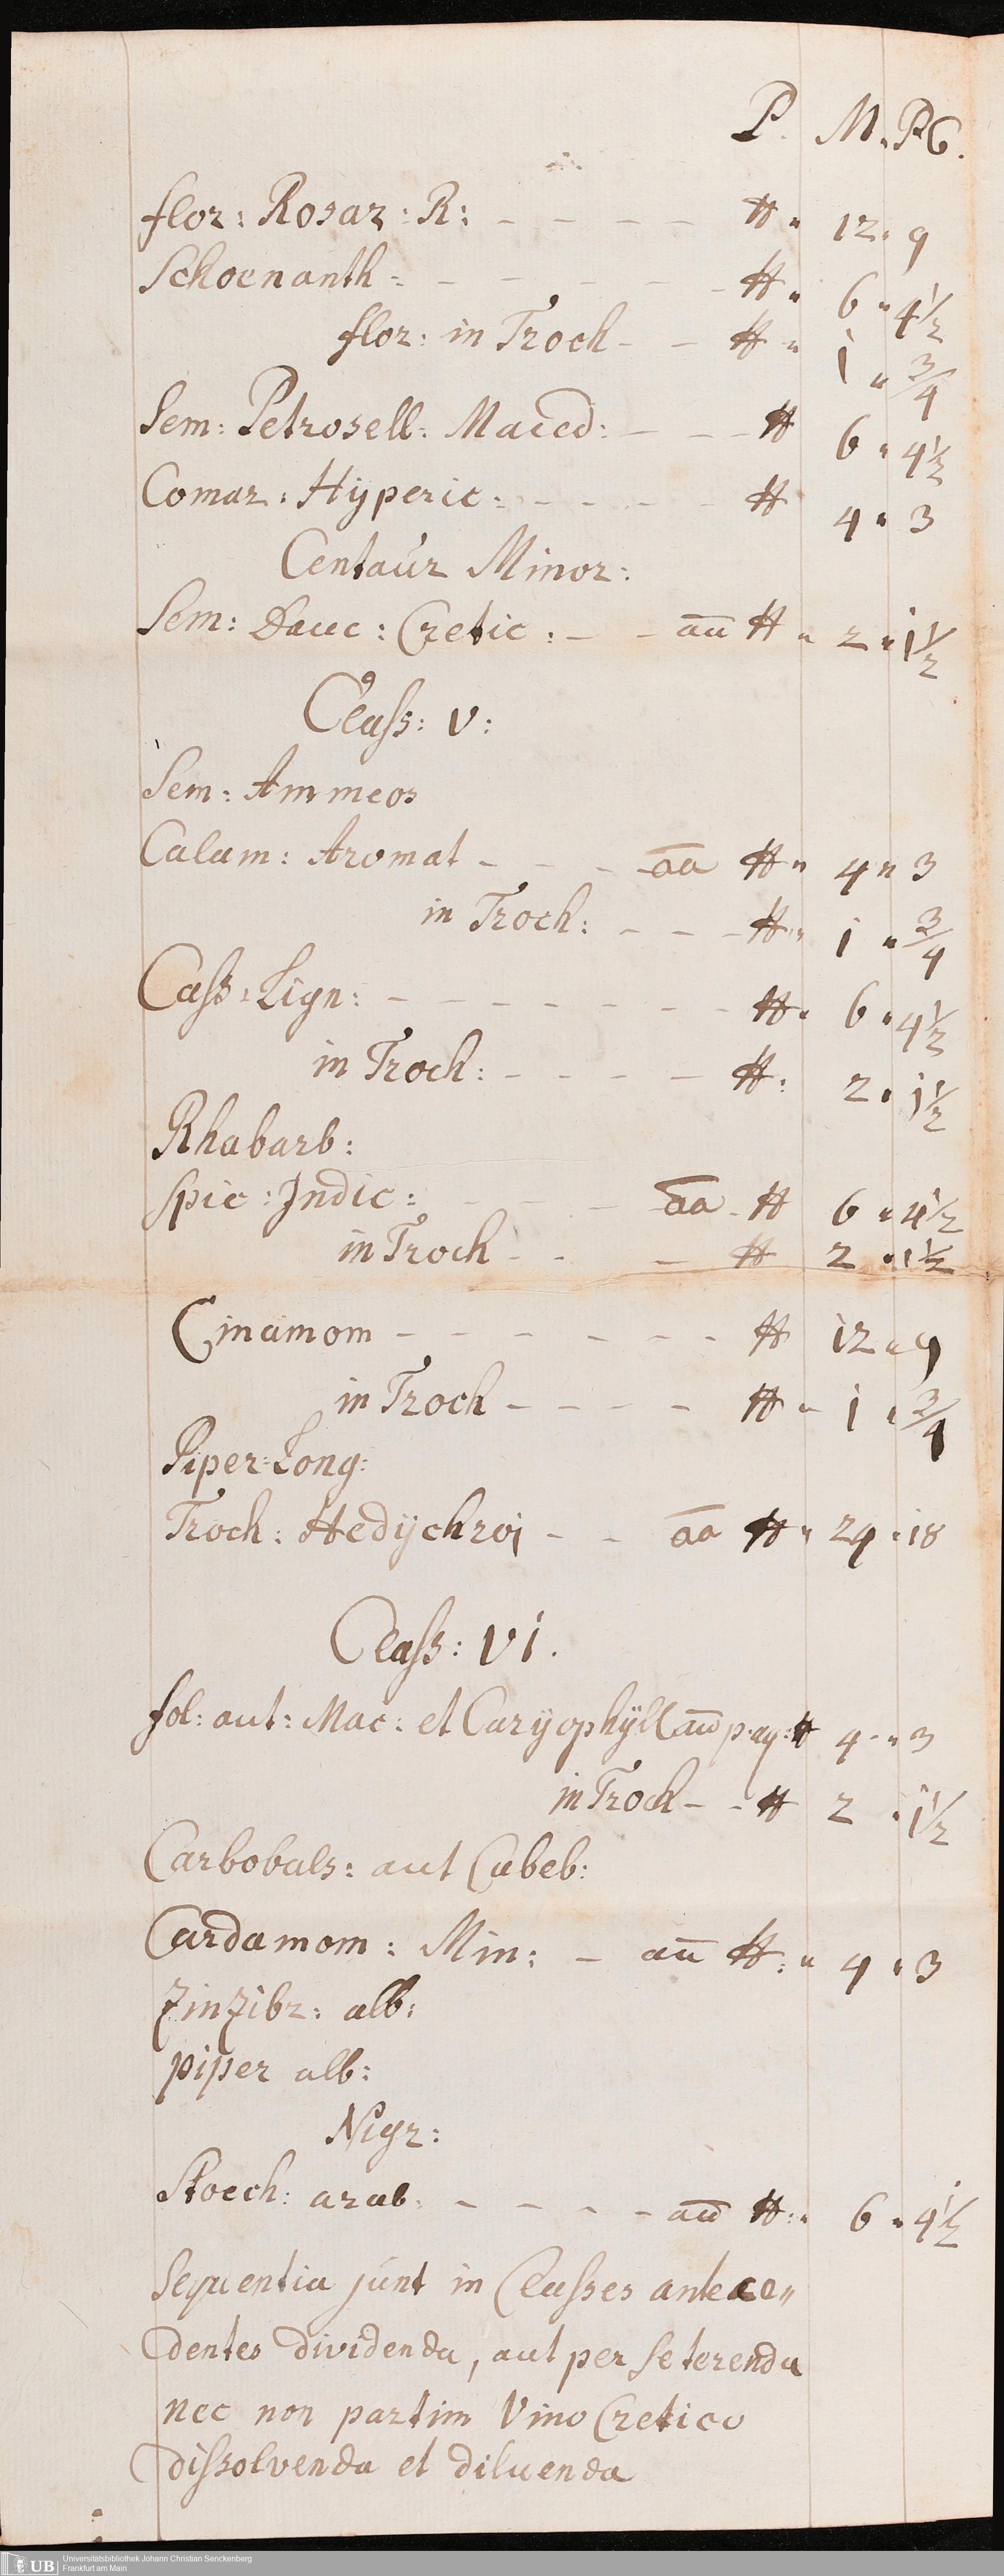 P. M. P6.
flor: Rosar: R: - - - - - ℔ " 12 " 9
Schoenanth: - - - - - - ℔ " 6 " 4½
flor: in Troch - - ℔ " 1 " ¾
Sem: Petrosell: Maced: - - - ℔ 6 " 4½
Comar: Hÿperic: - - - - - ℔ 4 " 3
Centaur Minor:
Sem: Dauc: Cretic: - - aū ℔ " 2 " 1½
Class: V:
Sem: Ammeos
Calam: Aromat - - - āa ℔ " 4 " 3
in Troch: - - - ℔ " 1 " ¾
Cass: Lign: - - - - - - - ℔ " 6 " 4½
in Troch: - - - - ℔: 2 " 1½
Rhabarb:
Spic: Indic: - - - āa - ℔ 6 " 4½
in Troch - - - ℔ 2 " 1½
Cinamom - - - - - - - ℔ 12 " 9
in Troch - - - - ℔ " 1 " ¾
Piper: Long:
Troch: Hedÿchroj - - āa ℔ " 24 " 18
Class: VI.
fol: aut: Mac: et Carÿophÿll aū p. æq: ℔ 4 - " 3
in Troch - - ℔ 2 " 1½
Carbobals: aut Cubeb:
Cardamom: Min: - aū ℔: " 4 " 3
Zinzibr: alb:
piper alb:
Nigr:
Stoech: arab. - - - - aū ℔: " 6 " 4½
Sequentia sunt in Classes antece„
dentes dividenda, aut per se terenda
nec non partim Vino Cretico
dissolvenda et diluenda
UB Universitätsbibliothek Johann Christian Senckenberg
Frankfurt am Main